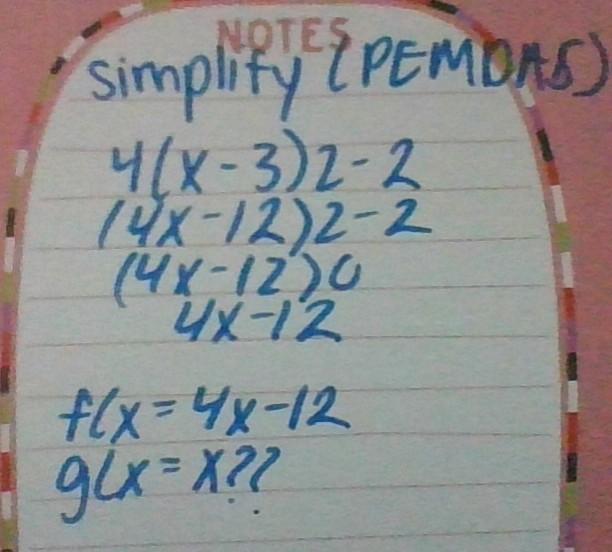 NOTES
simplify (PEMDAS)
4(x-3)2-2
(4x-12)2-2
(4x-12)0
4x-12
f(x=4x-12
g(x=x??